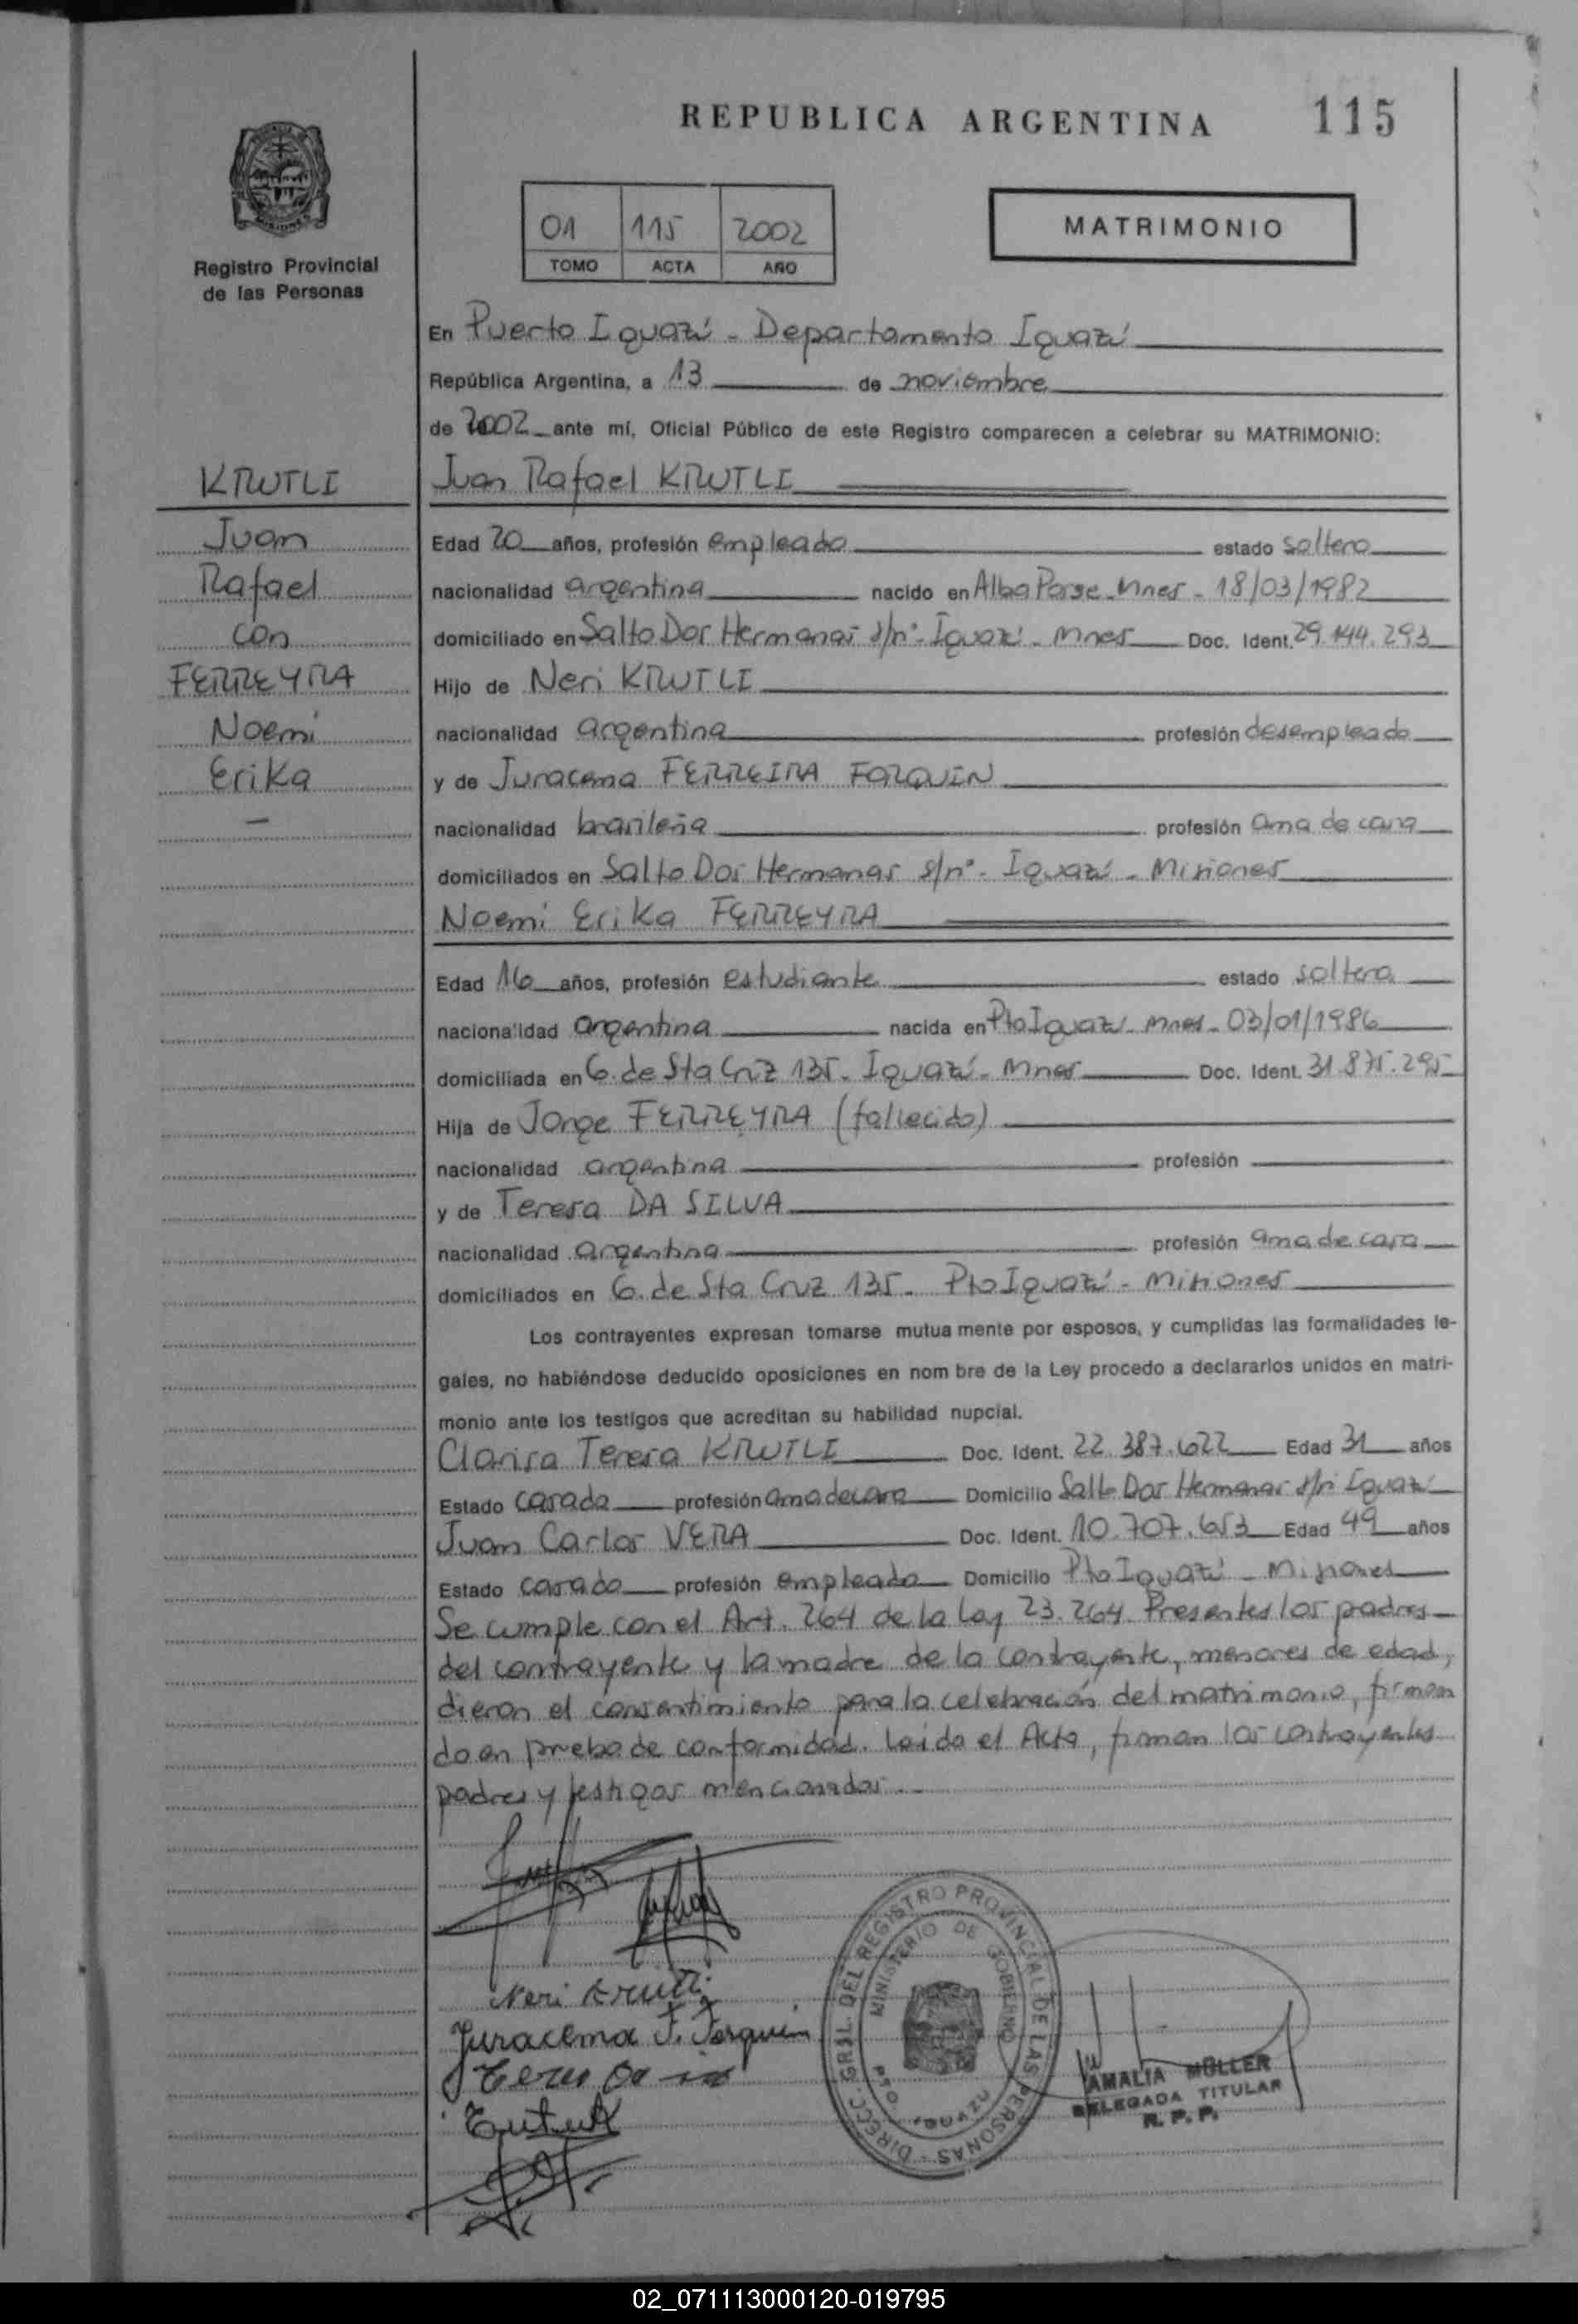 REPUBLICA ARGENTINA
115
Registro Provincial
de las Personas
01 115 2002
TOMO ACTA AÑO
MATRIMONIO
En Puerto Iguazú - Departamento Iguazú
República Argentina, a 13 de noviembre
de 2002 ante mí, Oficial Público de este Registro comparecen a celebrar su MATRIMONIO:
KRUTLI
Juan
Rafael
con
FERREYRA
Noemi
Erika
-
Juan Rafael KRUTLI
Edad 20 años, profesión empleado estado soltero
nacionalidad argentina nacido en Alba Posse - Mnes - 18/03/1982
domiciliado en Salto Dos Hermanas s/nº - Iguazú - Mnes Doc. Ident. 29.144.293
Hijo de Neri KRUTLI
nacionalidad argentina profesión desempleado
y de Juracema FERREIRA FORQUIN
nacionalidad brasileña profesión ama de casa
domiciliados en Salto Dos Hermanas s/nº - Iguazú - Misiones
Noemi Erika FERREYRA
Edad 16 años, profesión estudiante estado soltera
nacionalidad argentina nacida en Pto Iguazú - Mnes - 03/01/1986
domiciliada en G. de Sta Cruz 135 - Iguazú - Mnes Doc. Ident. 31.875.295
Hija de Jorge FERREYRA (fallecido)
nacionalidad argentina profesión
y de Teresa DA SILVA
nacionalidad argentina profesión ama de casa
domiciliados en G. de Sta Cruz 135 - Pto Iguazú - Misiones
Los contrayentes expresan tomarse mutua mente por esposos, y cumplidas las formalidades le-
gales, no habiéndose deducido oposiciones en nom bre de la Ley procedo a declararlos unidos en matri-
monio ante los testigos que acreditan su habilidad nupcial.
Clarisa Teresa KRUTLI Doc. Ident. 22.387.622 Edad 31 años
Estado casada profesión ama de casa Domicilio Salto Dos Hermanas s/n Iguazú
Juan Carlos VERA Doc. Ident. 10.707.653 Edad 49 años
Estado casado profesión empleado Domicilio Pto Iguazú - Misiones
Se cumple con el Art. 264 de la Ley 23.264. Presentes los padres
del contrayente y la madre de la contrayente, menores de edad,
dieron el consentimiento para la celebración del matrimonio, firman
do en prueba de conformidad. Leída el Acta, firman los contrayentes
padres y testigos mencionados.-
Neri Krutli
Juracema F. Forquin
DIRECC. GRAL. DEL REGISTRO PROVINCIAL DE LAS PERSONAS
MINISTERIO DE GOBIERNO
PTO IGUAZU
AMALIA MÜLLER
DELEGADA TITULAR
R. P. P.
02_071113000120-019795